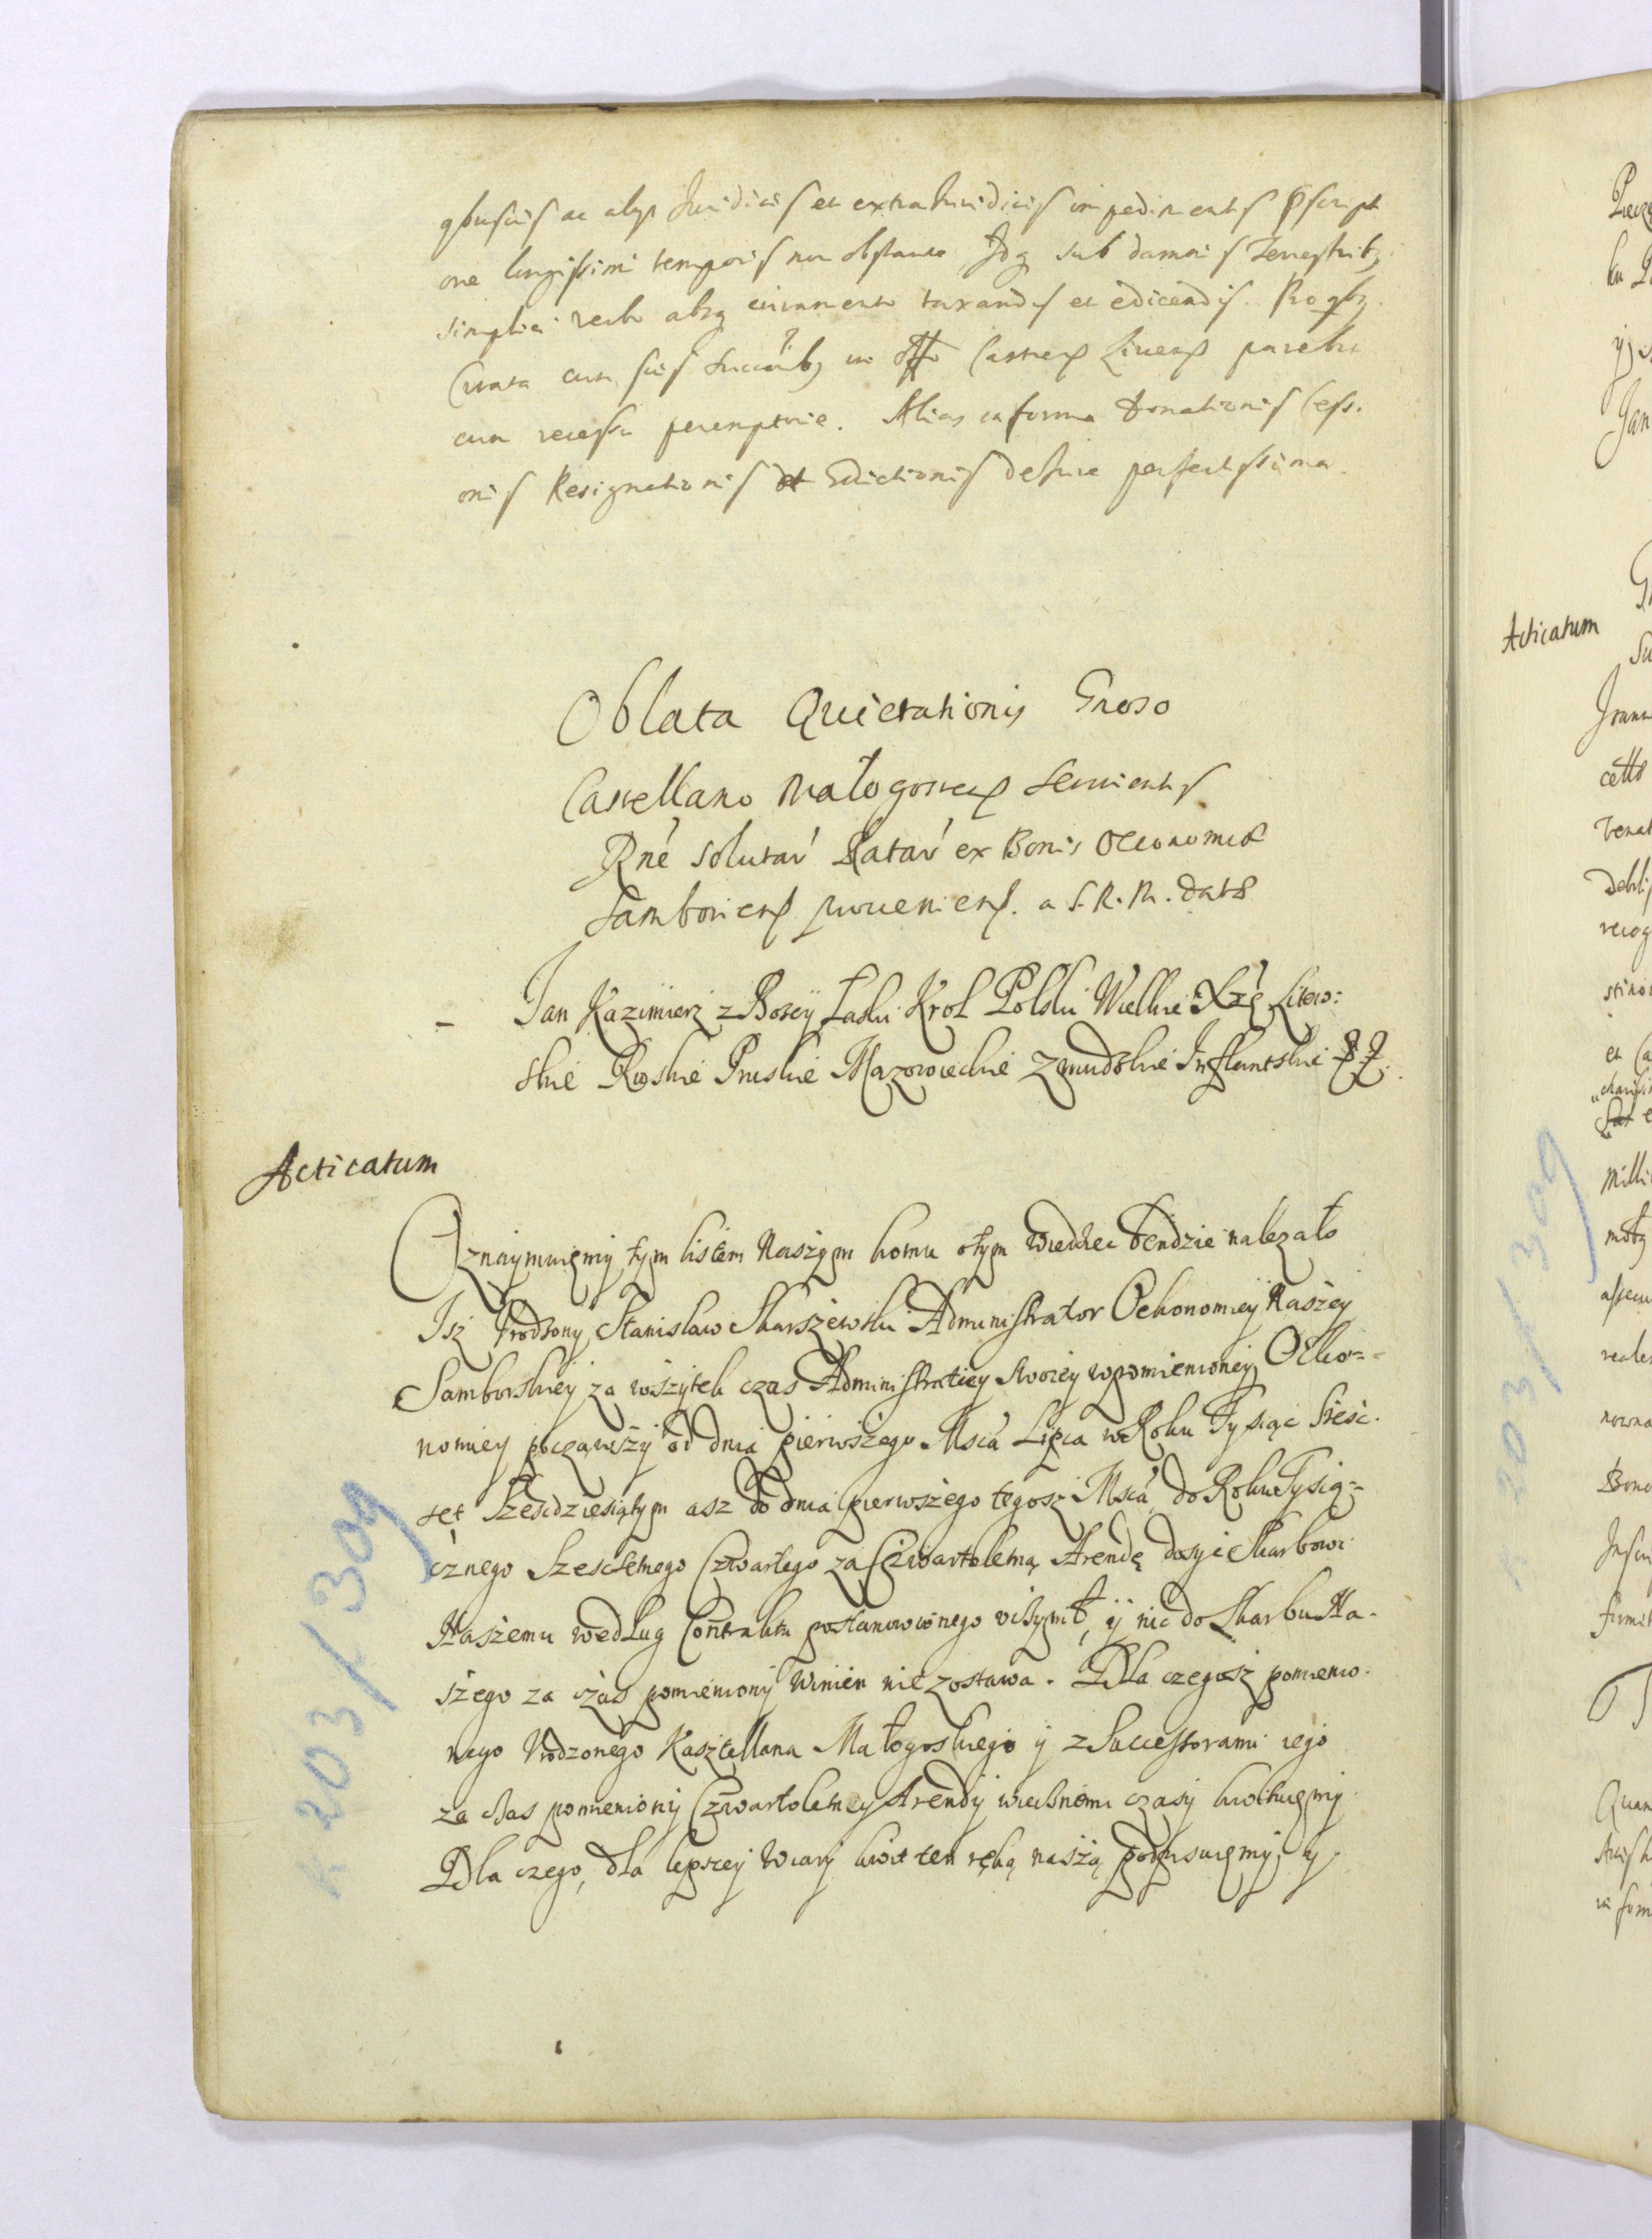 ac alys Juridicis et extraJuridicis impedimentis pscripti
one longissimi temporis non obstante Idq sub damnis Terrestribq
simplici verbo absq iuramento taxandis et edicendis. Pro qbq
Citata cum suis Succribq in Offo Castren Liuen parebit
cum recessu peremptorie. Alias in forma Donationis Cess.
onis Resignationis et Edictionis desuper perfectissima
Oblata Quietationis Gnoso
Castellano Małogoscen seruientis
Rne solutar Ratar ex Bonis Oeconomiae
Samborien prouenien. a S. R. M. data
– Jan Kazimierz z Bozey Łaski Krol Polski Wielkie Xzę Litew:
skie Ruskie Pruskie Mazowieckie Zmudzkie Inflantskie
Acticatum
Oznaymuięmy tym listem Naszym komu otym wiedziec bendzie nalezało
Isz Vrodzony Stanislaw Skarszewski Administrator Oekonomiey Naszey
Samborskiey za wszytek czas Administratiey swoiey wpomienioney Oeko=
nomiey począwszy od dnia pierwszego Msca Lipca w Roku Tysiąc Szesc.
set Szescdziesiątym asz do dnia pierwszego tegosz Msca do Roku Tysią=
cznego Szescsetnego Czwartego za Czwartoletną Arendę dosyc Skarbowi
Naszemu według Contraktu postanowionego vczynił, ÿ nic do Skarbu Na.
szego za czas pomieniony winien nie zostawa. Dla czegosz pomienio.
nego Vrodzonego Kasztellana Małogoskiego ÿ z Successorami iego
za czas pomieniony Czwartoletney Arendy wiecznemi czasy kwituięmy
Dla czego, dla lepszey wiary kwit ten ręką naszą podpisuięmy, ÿ
K 203/309
Acticatum
203/309